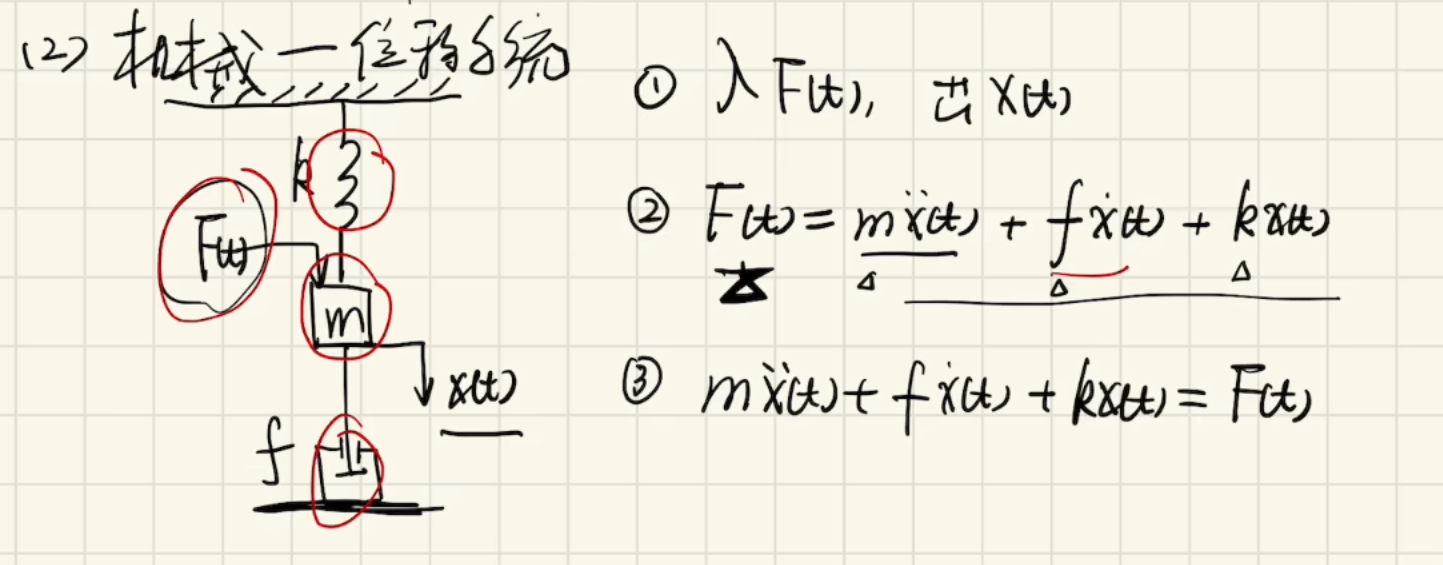 (2) 机械一位移系统
k
F(t)
m
x(t)
f
① 入F(t), 出x(t)
② F(t) = mẍ(t) + fẋ(t) + kx(t)
③ mẍ(t) + fẋ(t) + kx(t) = F(t)